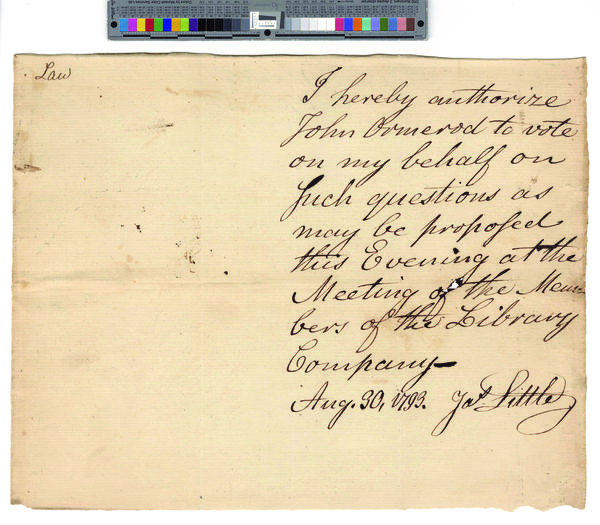 Law
I hereby authorize
John Ormerod to vote
on my behalf on
Such questions as
may be proposed
this Evening at the
Meeting of the Mem-
bers of the Library
Company—
Aug. 30, 1793. Jas. Little